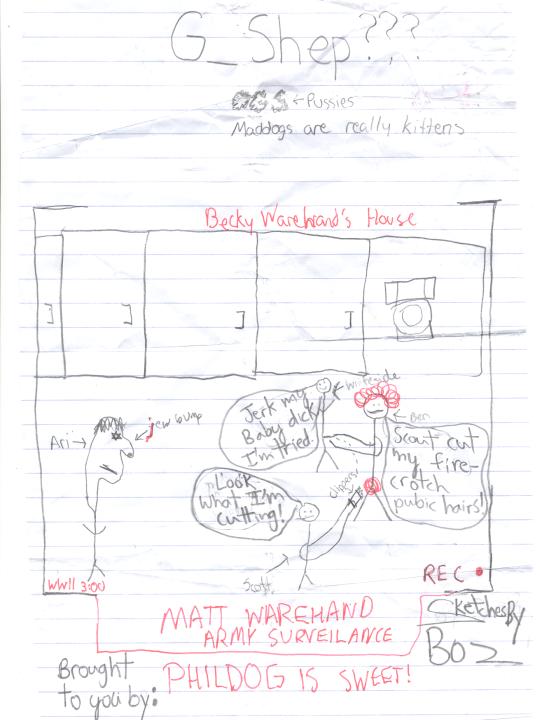 G_Shep???
←Pussies
Maddogs are really kittens
Becky Warehand's House
Whiteside
Jerk my
Baby dick
I'm tried.
Ben
Ari
jew bump
Scout cut
my fire-
crotch
pubic hairs!
clippers
Look
what I'm
cutting!
Scott
WWII 3:00
REC
MATT WAREHAND
ARMY SURVEILANCE
Sketches By
BOZ
Brought
to you by:
PHILDOG IS SWEET!